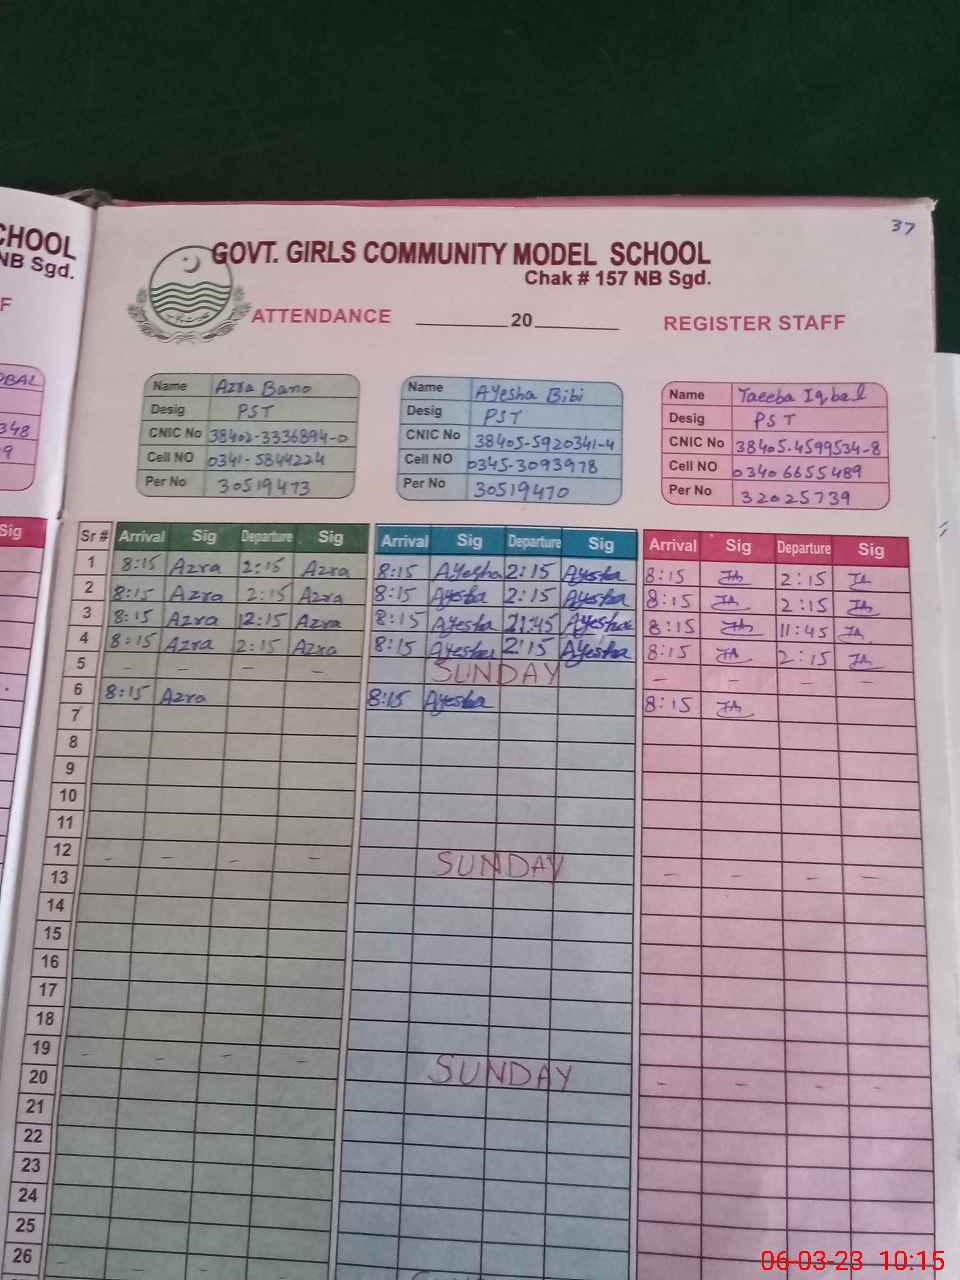 CHOOL
NB Sgd.
F
348
9
Sig
37
GOVT. GIRLS COMMUNITY MODEL SCHOOL
Chak # 157 NB Sgd.
ATTENDANCE ________20________ REGISTER STAFF
Name Azra Bano
Desig PST
CNIC No 38402-3336894-0
Cell NO 0341-5844224
Per No 30519473
Name Ayesha Bibi
Desig PST
CNIC No 38405-5920341-4
Cell NO 0345-3093978
Per No 30519470
Name Taeeba Iqbal
Desig PST
CNIC No 38405-4599534-8
Cell NO 0340 6655489
Per No 32025739
Sr # Arrival Sig Departure Sig Arrival Sig Departure Sig Arrival Sig Departure Sig
1 8:15 Azra 2:15 Azra 8:15 Ayesha 2:15 Ayesha 8:15 2:15
2 8:15 Azra 2:15 Azra 8:15 Ayesha 2:15 Ayesha 8:15 2:15
3 8:15 Azra 12:15 Azra 8:15 Ayesha Ayesha 8:15 11:45
4 8:15 Azra 2:15 Azra 8:15 Ayesha 2:15 Ayesha 8:15 2:15
5 – – – – SUNDAY – – – –
6 8:15 Azra 8:15 Ayesha 8:15
7
8
9
10
11
12 – – – – SUNDAY – – – –
13
14
15
16
17
18
19 – – – – SUNDAY – – – –
20
21
22
23
24
25
26
06-03-23 10:15